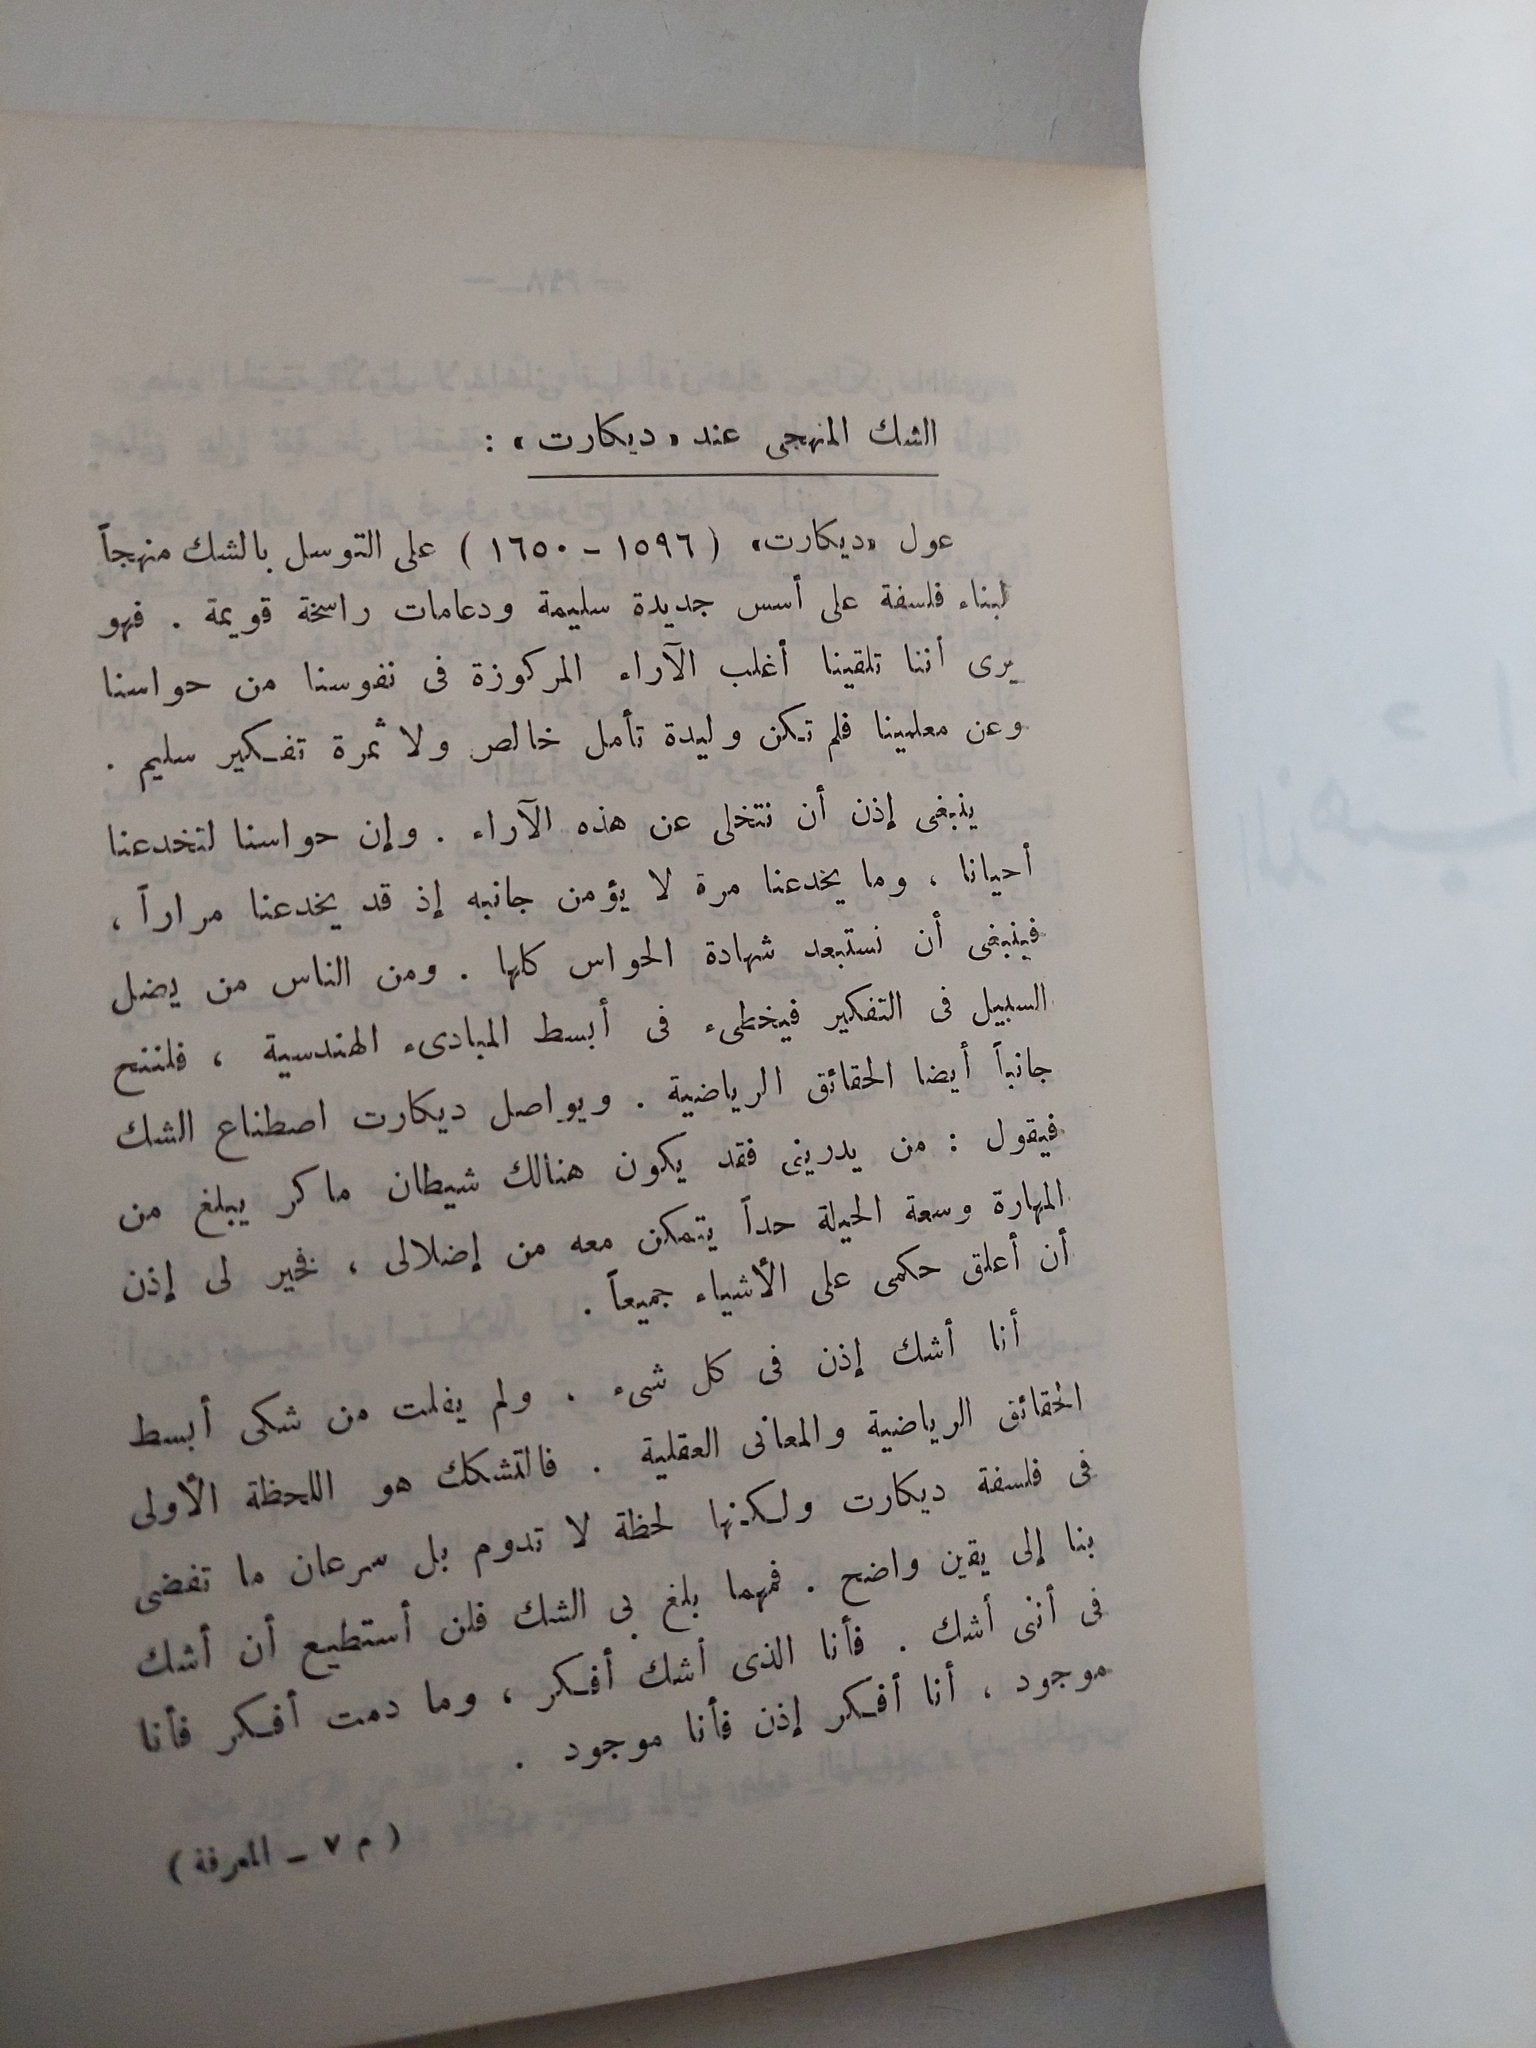 الشك المنهجى عند « ديكارت » :
عول «ديكارت» ( ١٥٩٦ – ١٦٥٠ ) على التوسل بالشك منهجاً
لبناء فلسفة على أسس جديدة سليمة ودعامات راسخة قويمة . فهو
يرى أننا تلقينا أغلب الآراء المركوزة فى نفوسنا من حواسنا
وعن معلمينا فلم تكن وليدة تأمل خالص ولا ثمرة تفكير سليم .
ينبغى إذن أن نتخلى عن هذه الآراء . وإن حواسنا لتخدعنا
أحيانا ، وما يخدعنا مرة لا يؤمن جانبه إذ قد يخدعنا مراراً ،
فينبغى أن نستبعد شهادة الحواس كلها . ومن الناس من يضل
السبيل فى التفكير فيخطىء فى أبسط المبادىء الهندسية ، فلننح
جانباً أيضا الحقائق الرياضية . ويواصل ديكارت اصطناع الشك
فيقول : من يدرينى فقد يكون هنالك شيطان ماكر يبلغ من
المهارة وسعة الحيلة حداً يتمكن معه من إضلالى ، فخير لى إذن
أن أعلق حكمى على الأشياء جميعاً .
أنا أشك إذن فى كل شىء . ولم يفلت من شكى أبسط
الحقائق الرياضية والمعانى العقلية . فالتشكك هو اللحظة الأولى
فى فلسفة ديكارت ولكنها لحظة لا تدوم بل سرعان ما تفضى
بنا إلى يقين واضح . فمهما بلغ بى الشك فلن أستطيع أن أشك
فى أننى أشك . فأنا الذى أشك أفكر ، وما دمت أفكر فأنا
موجود ، أنا أفكر إذن فأنا موجود .
( م ٧ – المعرفة )